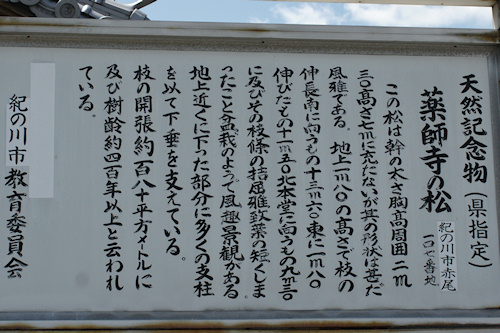 天然記念物（県指定）
薬師寺の松
紀の川市赤尾
一〇七番地
この松は幹の太さ胸高周囲二m
三〇高さ二mに充たないが其の形状は甚だ
風雅である。地上一m八〇の高さで枝の
伸長南に向うもの十三m六〇東に一m八〇
伸びたもの十一m五〇北本堂に向うもの九m三〇
に及びその枝條の拮屈雅致葉の短くしま
ったこと盆栽のよって風趣景観がある
地上近くに下った部分に多くの支柱
を以て下垂を支えている。
枝の開張約一百八十平方メートルに
及び樹齢約四百年以上と云われ
ている。
紀の川市教育委員会